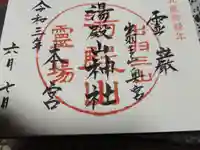 出羽三山奥宮
霊巌
湯殿山神社
本宮
霊場
令和三年
六月七日